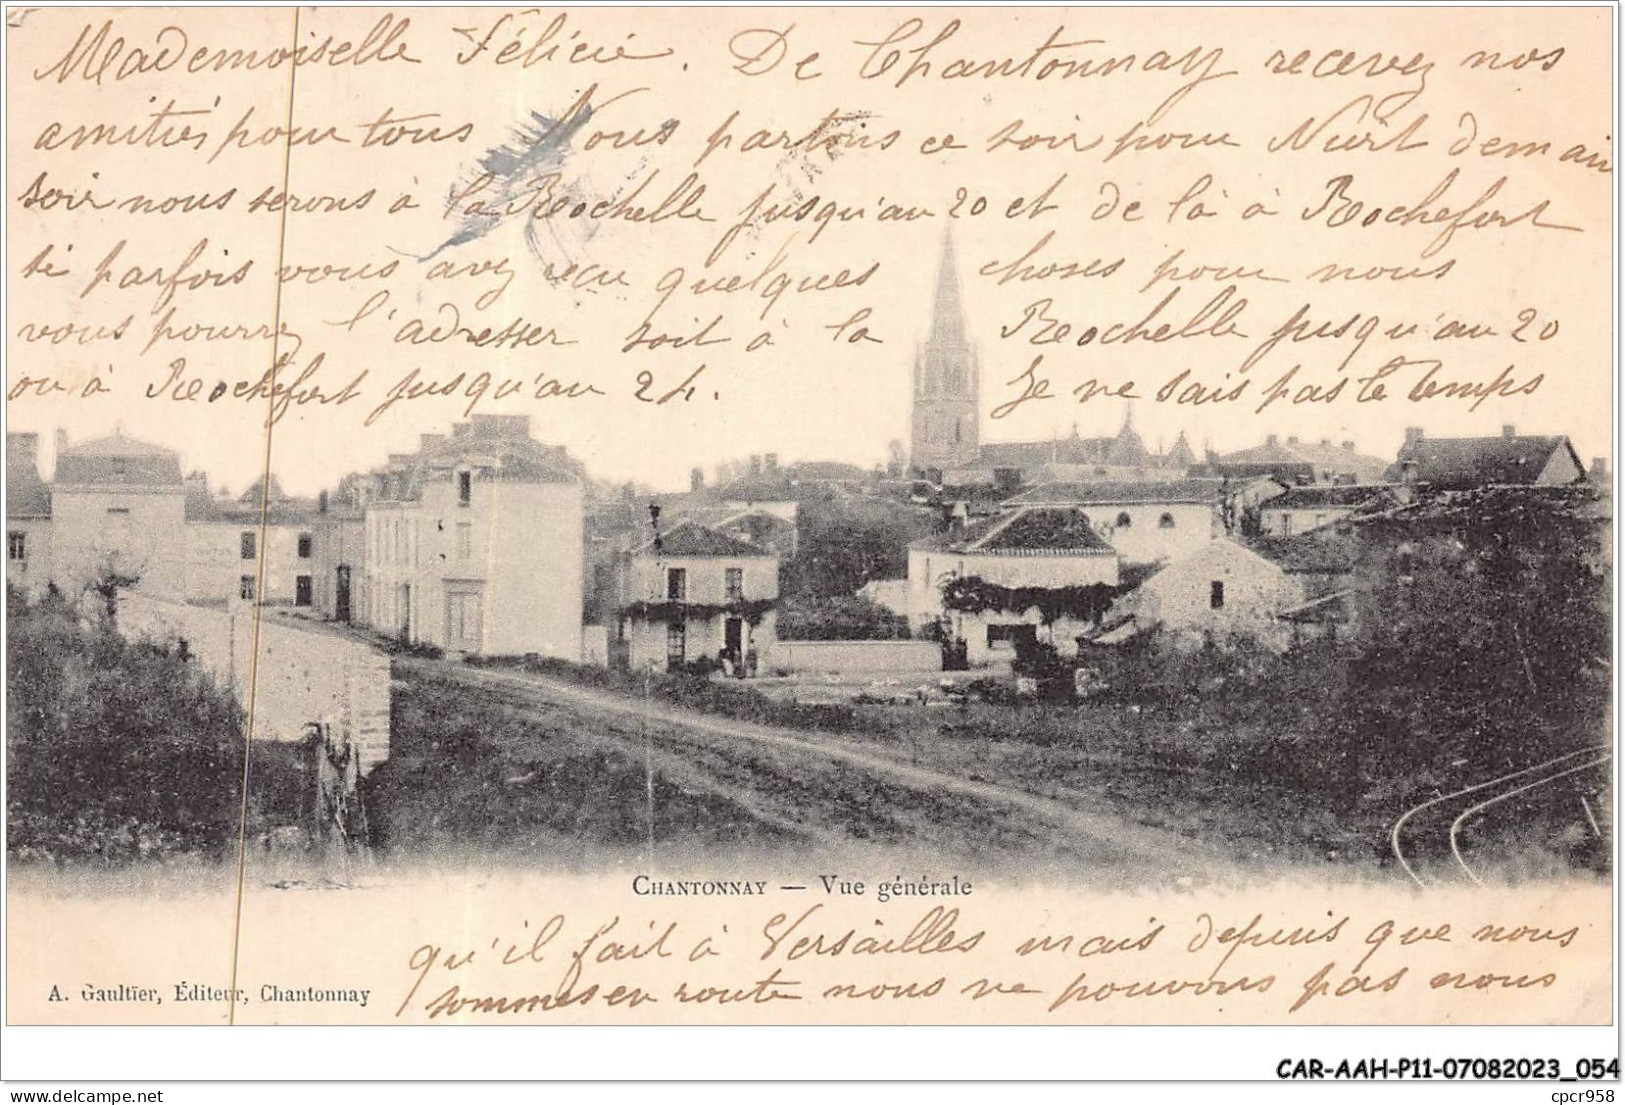 Mademoiselle Félicie. De Chantonnay recevez nos
amitiés pour tous Nous partons ce soir pour Niort demain
soir nous serons à la Rochelle jusqu'au 20 et de là à Rochefort
si parfois vous avez recu quelques choses pour nous
vous pourrez l'adresser soit à la Rochelle jusqu'au 20
ou à Rochefort jusqu'au 24. Je ne sais pas le temps
CHANTONNAY — Vue générale
qu'il fait à Versailles mais depuis que nous
sommes en route nous ne pouvons pas nous
A. Gaultier, Éditeur, Chantonnay
CAR-AAH-P11-07082023_054
delcampe.net
cpcr958